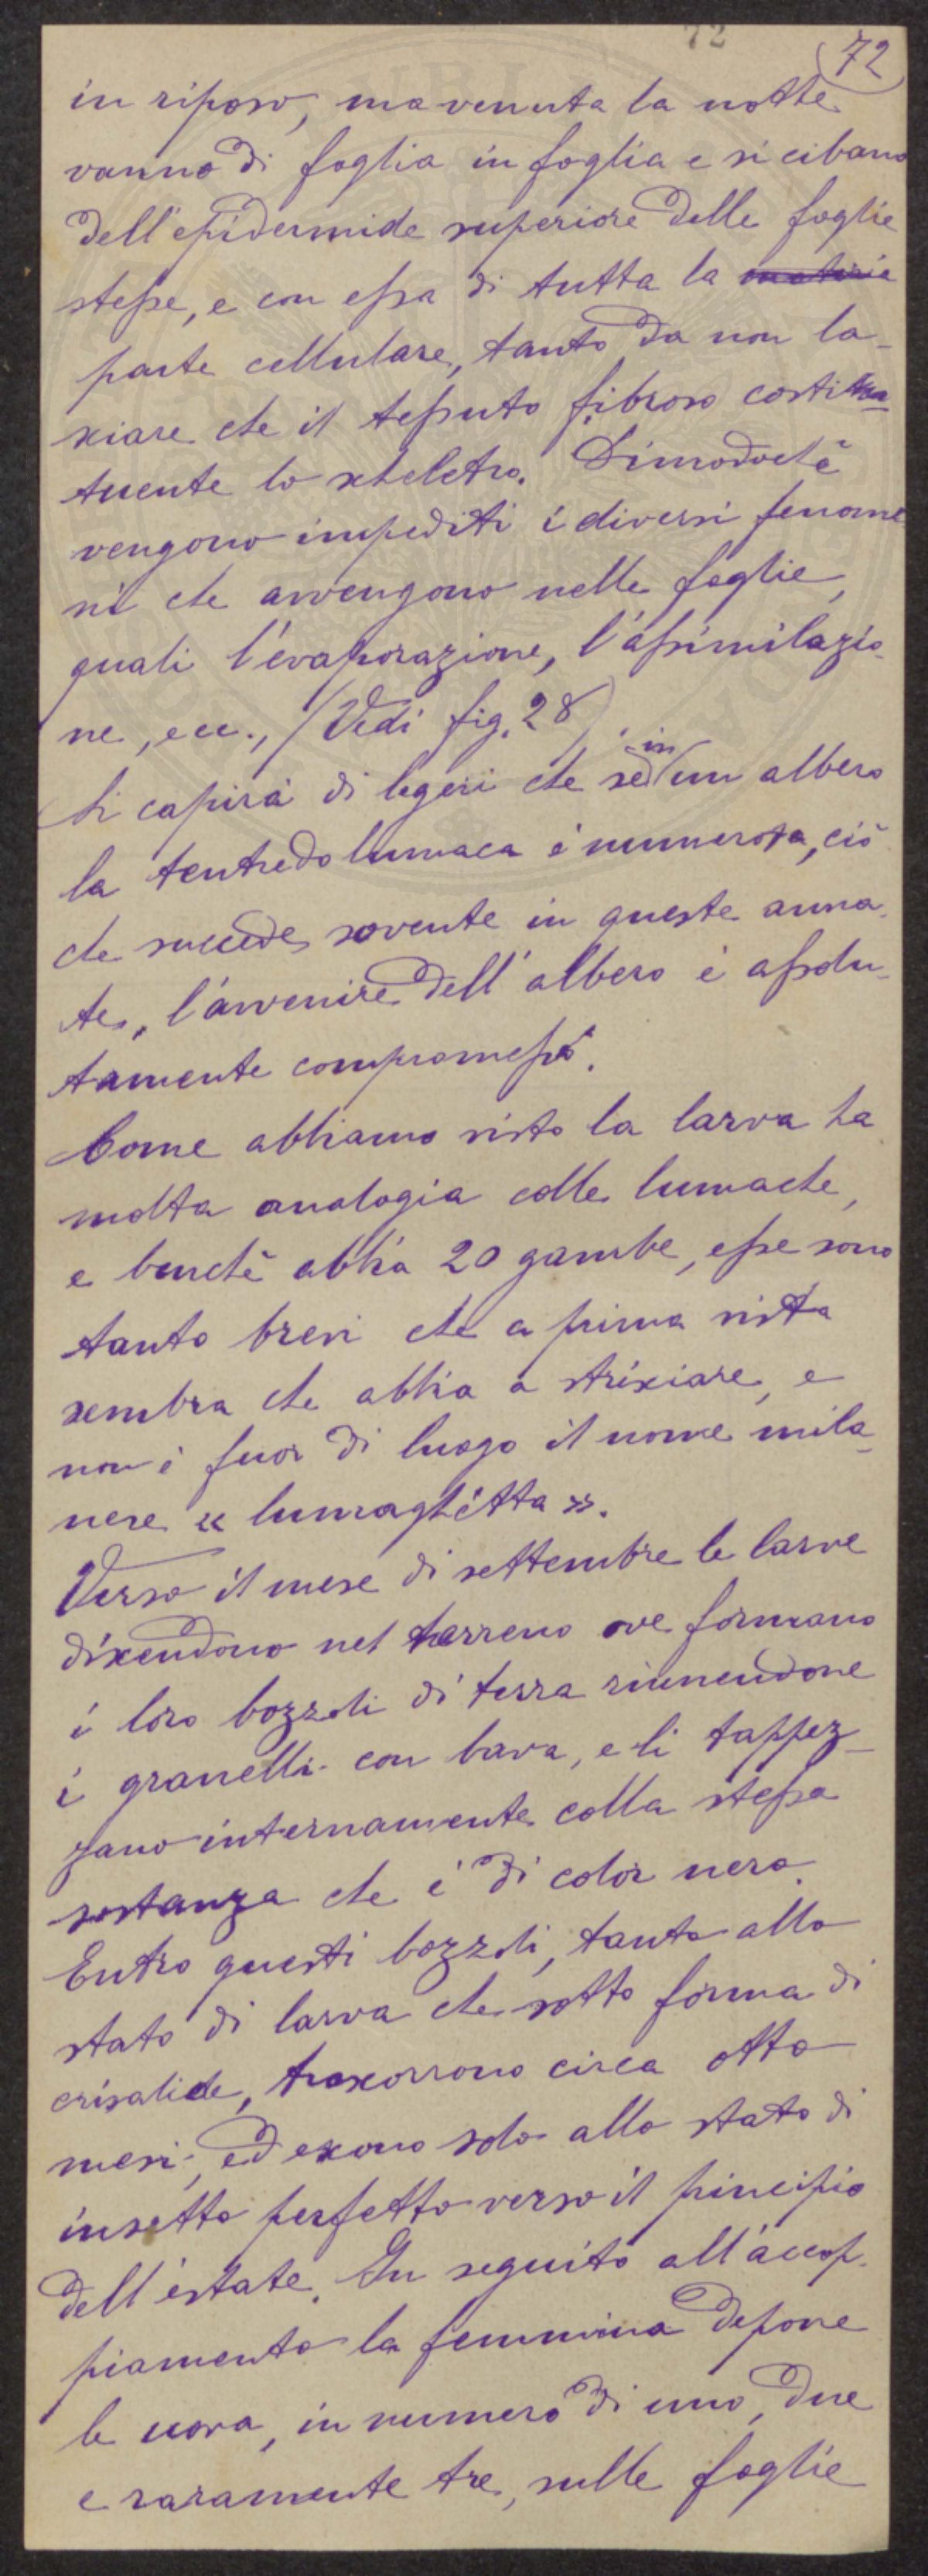 72
(72)
in riposo, ma venuta la notte
vanno di foglia in foglia e si cibano
dell'epidermide superiore delle foglie
stesse, e con essa di tutta la materia
parte cellulare, tanto da non la-
sciare che il tessuto fibroso costitu-
tuente lo scheletro. Dimodochè
vengono impediti i diversi fenome
ni che avvengono nelle foglie,
quali l'evaporazione, l'assimilazio-
ne, ecc., (Vedi fig. 28).
Si capirà di legeri che se in un albero
la tentredo lumaca è numerosa, ciò
che succede sovente in queste anna-
te, l'avvenire dell'albero è assolu-
tamente compromesso.
Come abbiamo visto la larva ha
molta analogia colle lumache,
e benchè abbia 20 gambe, esse sono
tanto brevi che a prima vista
sembra che abbia a strisciare, e
non è fuor di luogo il nome mila-
nese « lumaghètta ».
Verso il mese di settembre le larve
discendono nel terreno ove formano
i loro bozzoli di terra riunendone
i granelli con bava, e li tappez-
zano internamente colla stessa
sostanza che è di color nero.
Entro questi bozzoli, tanto allo
stato di larva che sotto forma di
crisalide, trascorrono circa otto
mesi, ed escono solo allo stato di
insetto perfetto verso il principio
dell'estate. In seguito all'accop-
piamento la femmina depone
le uova, in numero di uno, due
e raramente tre, sulle foglie